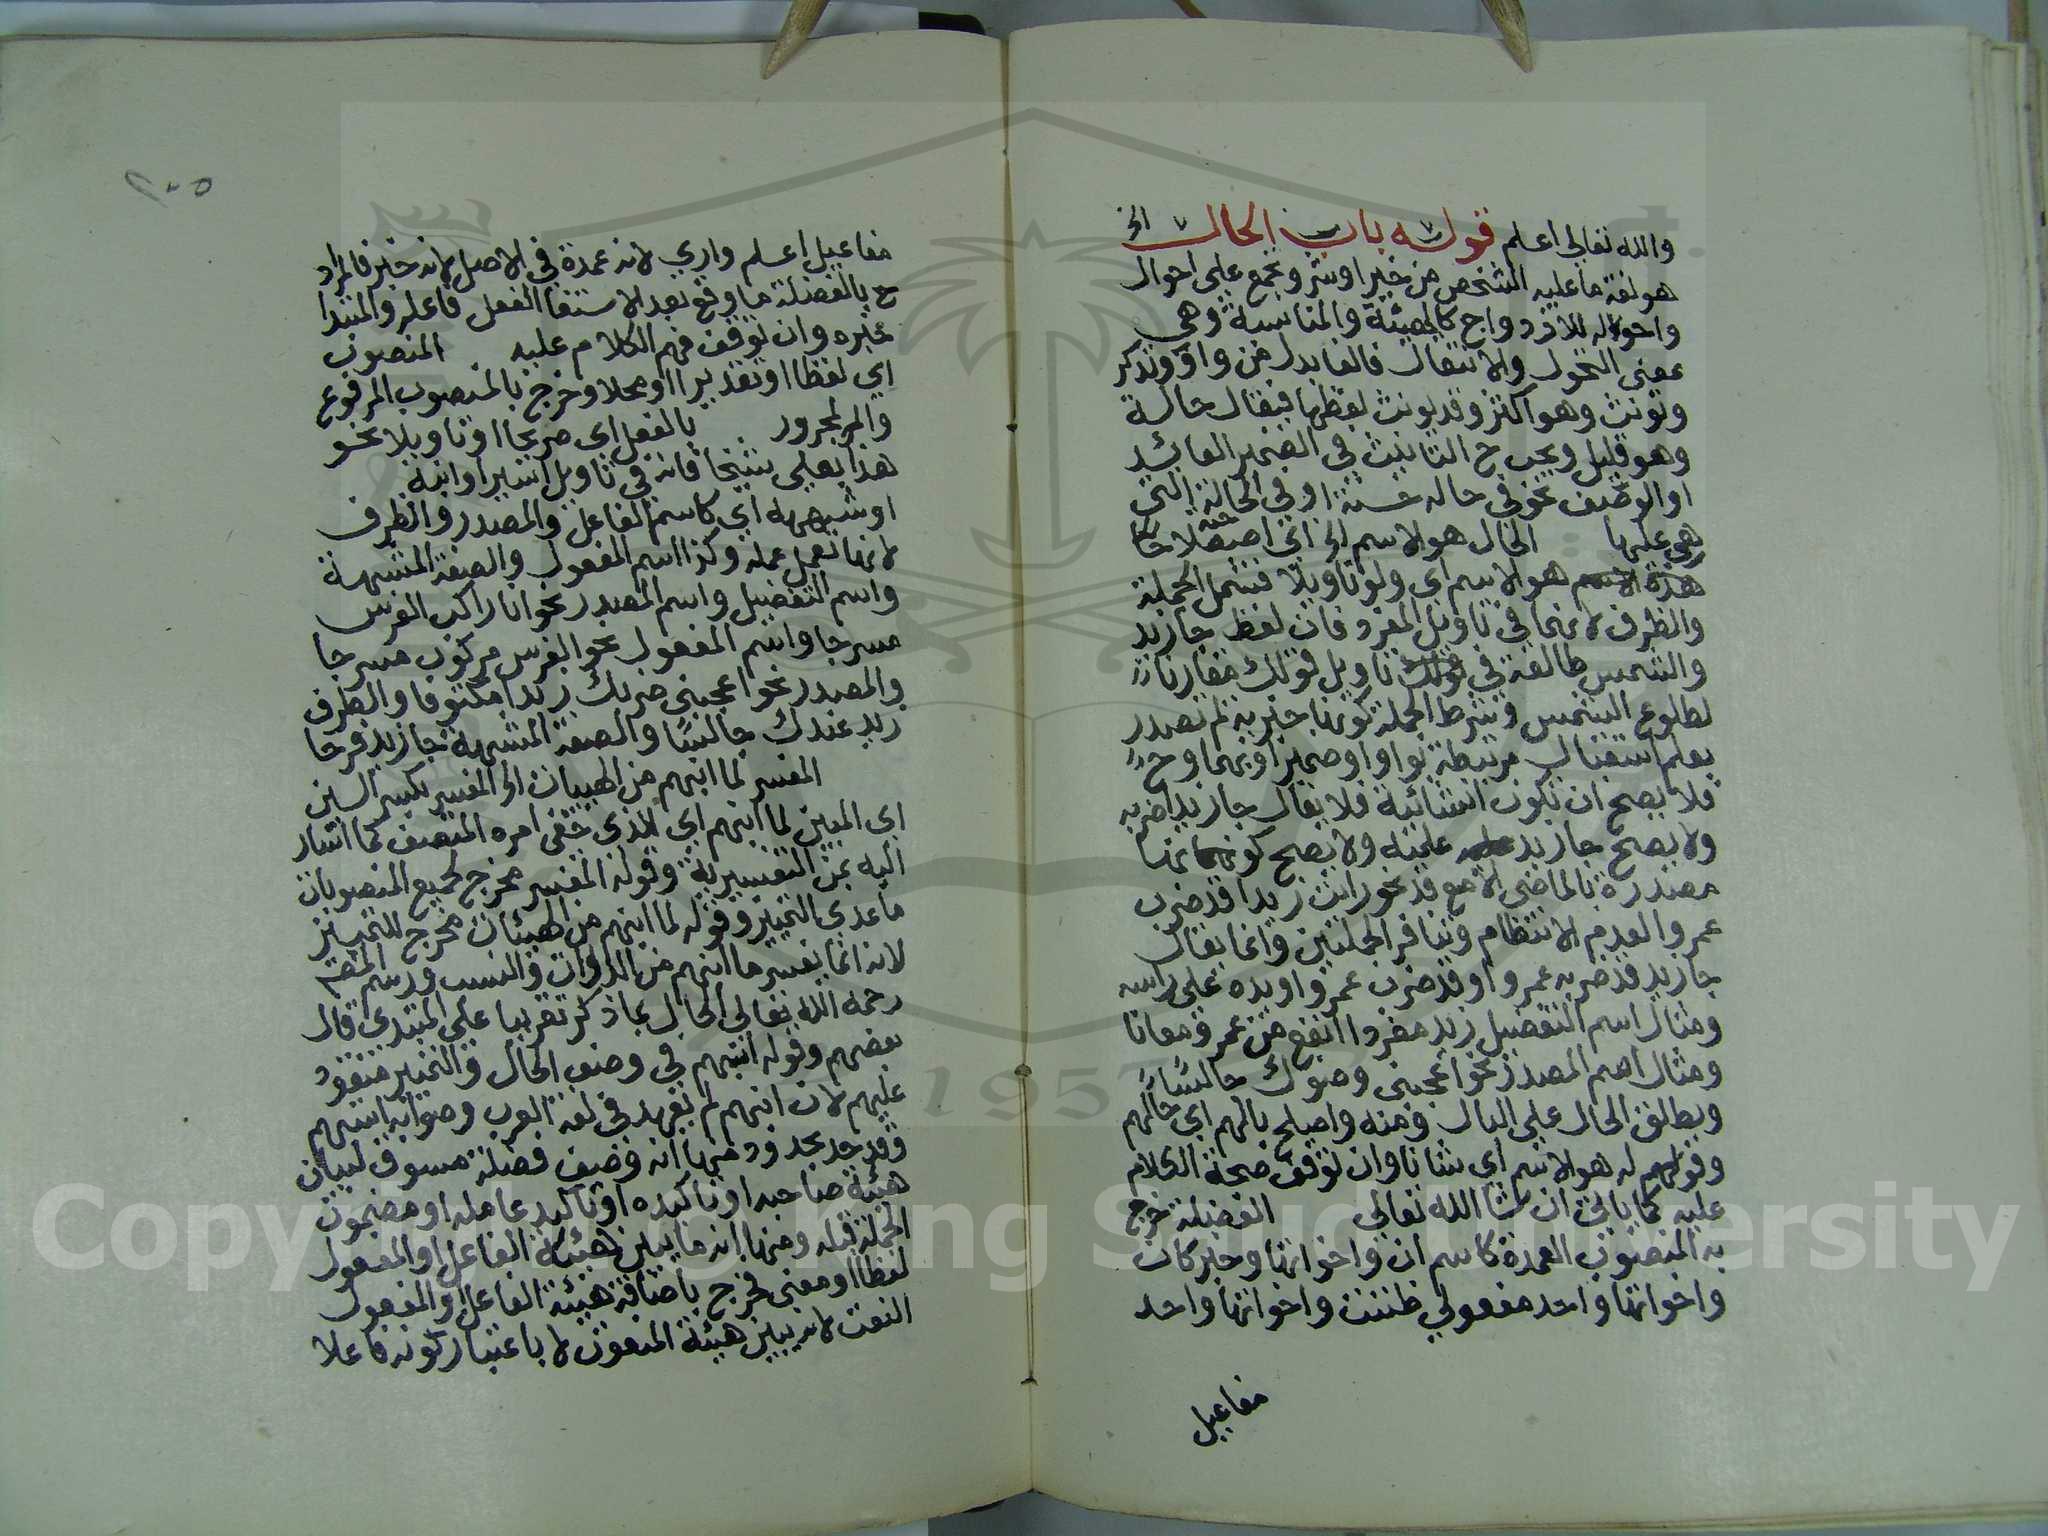 والله تعالى اعلم قوله باب الحال الخ
هو لغة ما عليه الشخص من خير او شر وتجمع على احوال
واحوله للازدواج كالهيئة والمناسبة وهي
بمعنى التحول والانتقال فالفها بدل من واو وتذكر
وتؤنث وهو اكثر وقد يؤنث لفظها فيقال حالة
وهو قليل ويجب ح التانيث في الضمير العائد
او الوصف نحو في حاله حسنة او في الحالة التي
هي عليها الحال هو الاسم الخ اي
هذه هو الاسم اي ولو تاويلا فتشمل الجملة
والظرف لانهما في تاويل المفرد فان لفظ جا زيد
والشمس طالعة في تاويل قولك مقارنا
لطلوع الشمس وشرط الجملة كونها خبرية لم تصدر
بعلم استقبال مرتبطة بواو او ضمير او بهما وح
فلا يصح ان تكون انشائية فلا يقال جا زيد اضربه
ولا يصح جا زيد علمته ولا يصح كونها
مصدرة بالماضي الا مع قد نحو رايت زيدا قد ضرب
عمروا لعدم الانتظام وتنافر الجملتين وانما يقال
جا زيد قد ضربه عمرو او قد ضرب عمروا ويده على راسه
ومثال اسم التفضيل زيد مفردا انفع من عمرو معانا
ومثال اسم المصدر نحو اعجبني وضوك جالسًا
ويطلق الحال على البال ومنه واصلح بالهم اي حالهم
وقولهم له هو الاسم اي شانا وان توقف صحة الكلام
عليه كما ياتي ان شا الله تعالى الفضلة خرج
به المنصوب العمدة كاسم ان واخواتها وخبر كان
واخواتها واحد مفعولي ظننت واخواتها واحد
مفاعيل
٢٠٥
مفاعيل اعلم واري لانه عمدة في الاصل لانه خبر فالمراد
ح بالفضلة ما وقع بعد الاستفا الفعل فاعله والمبتدا
خبره وان توقف فهم الكلام عليه المنصوب
اي لفظا او تقديرا او محلا وخرج بالمنصوب المرفوع
والمجرور بالفعل اي صريحا او تاويلا نحو
هذا بعلي شيخا فانه في تاويل اشير او انبه
او شبهه اي كاسم الفاعل والمصدر والظرف
لانها تعمل عمله وكذا اسم المفعول والصفة المشبهة
واسم التفضيل واسم المصدر نحو انا راكب الفرس
مسرجا واسم المفعول نحو الفرس مركوب مسرجا
والمصدر نحو اعجبني ضربك زيدا مكتوفا والظرف
زيد عندك جالسًا والصفة المشبهة جا زيد فرحا
المفسر لما انبهم من الهيات الخ المفسر بكسر السين
اي المبين لما انبهم اي للذي خفي امره المتصف كما اشار
اليه بمن التفسيرية وقوله المفسر مخرج لجميع المنصوبات
ما عدي التمييز وقوله لما انبهم من الهيئات مخرج للتمييز
لانه انما يفسر ما انبهم من الذوات والنسب ورسم المص
رحمه الله تعالى الحال بما ذكر تقريبا على المبتدي قال
بعضهم وقوله انبهم في وصف الحال والتمييز منقود
عليهم لان انبهم لم يعهد في لغة العرب وصوابه استبهم
وقد حد بحدود منها انه وصف فضلة مسوق لبيان
هيئة صاحبه او تاكيده او تاكيد عامله او مضمون
الجملة قبله ومنها انه ما يبين هيئة الفاعل او المفعول
لفظا او معنى فخرج باضافة هيئة الفاعل والمفعول
النعت لانه يبين هيئة المنعوت لا باعتبار كونه فاعلا
Copyright © King Saud University
1957